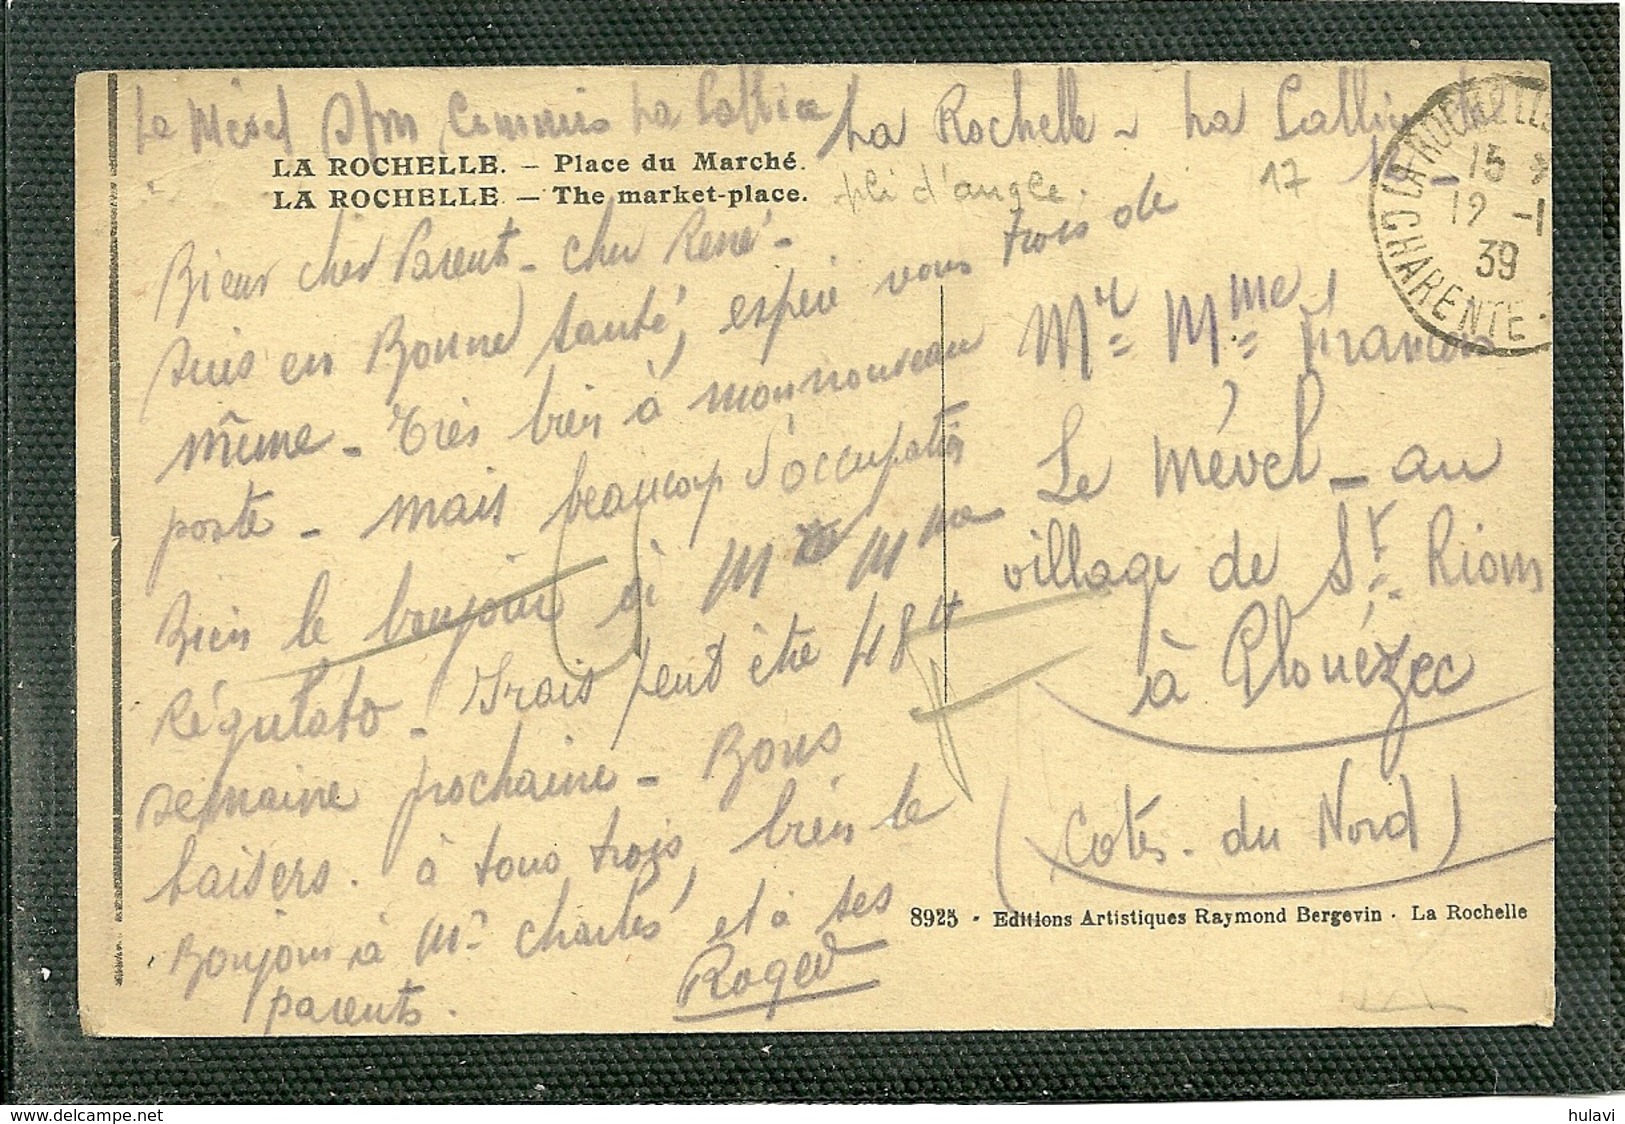 Le Mével
La Rochelle - La
LA ROCHELLE. — Place du Marché.
LA ROCHELLE — The market-place.
pli d'angle.
17
LA ROCHELLE
15
12 -1
39
CHARENTE
Bien cher Parents - cher René -
suis en Bonne santé, espère vous trois de
même - très bien à mon nouveau
poste - mais beaucoup d'occupation
Bien le bonjour à Mr Mme
Régulato - Irais peut être 48 H
semaine prochaine - Bons
baisers. à tous trois, bien le
Bonjour à Mr Charles et à ses
parents.
Roger
Mr = Mme = Francis
Le Mével - au
village de St. Riom
à Plouézec
(Côtes. du Nord)
8925 - Editions Artistiques Raymond Bergevin - La Rochelle
hulavi
www.delcampe.net